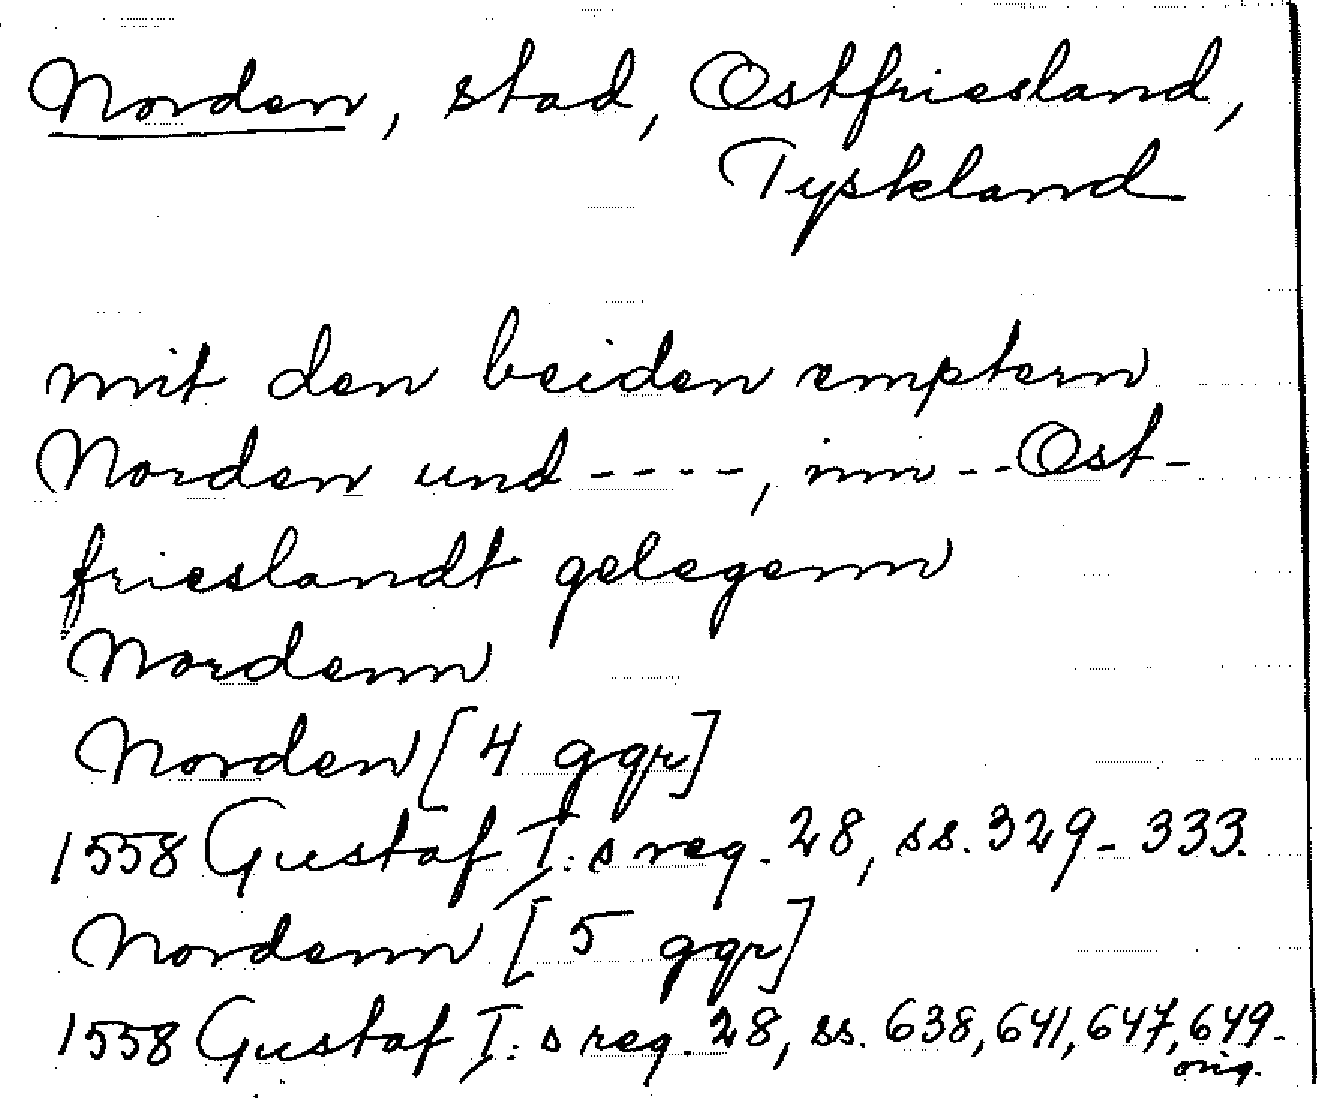 Norden, stad, Ostfriesland,
Tyskland
mit den beiden emptern
Norden und ----, inn -- Ost-
frieslandt gelegenn
Nordenn
Norden [4 ggr]
1558 Gustaf I:s reg. 28, ss. 329-333.
Nordenn [5 ggr]
1558 Gustaf I:s reg. 28, ss. 638, 641, 647, 649.
orig.